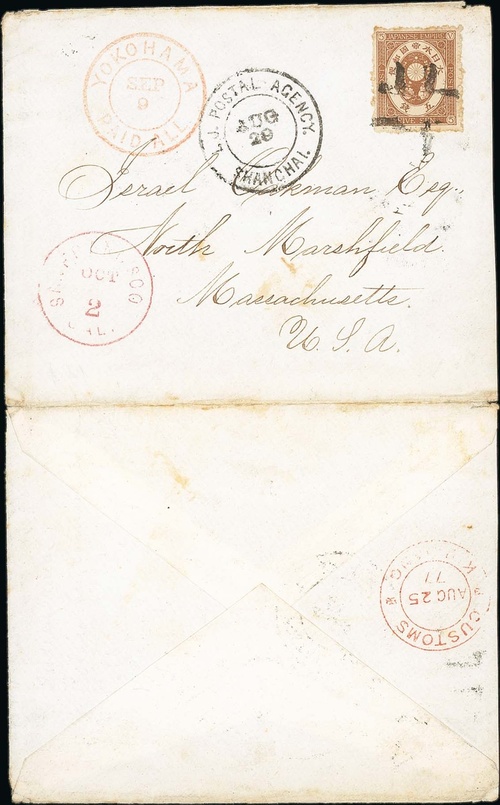 YOKOHAMA
SEP
9
PAID ALL
I.J. POSTAL AGENCY.
AUG
29
SHANGHAI.
JAPANESE EMPIRE
大日本帝國郵便
Israel Esq.,
North Marshfield.
Massachusetts.
U. S. A.
OCT
2
CAL.
CUSTOMS
AUG 25
77